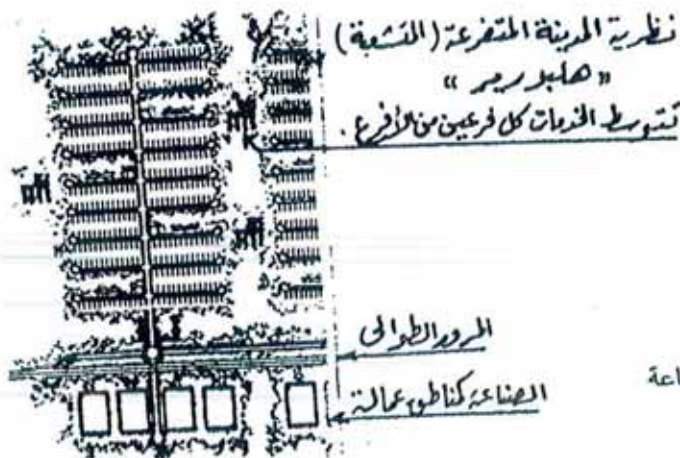 نظرية المدينة المتفرعة (المتشعبة)
" هلبدريمر "
تتوسط الخدمات كل فرعين من الأفرع .
المرور الطوالى
الصناعة كمناطق عمالة
اعة